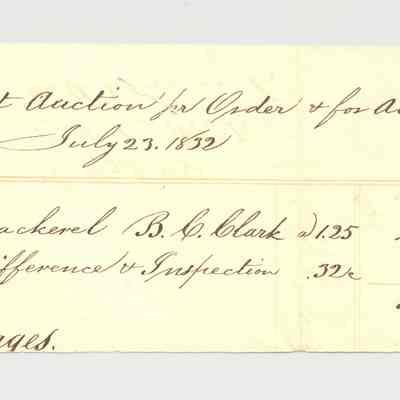 t Auction pr Order & for A
July 23. 1832
ackerel B. C. Clark a) 1.25
ifference & Inspection .32
ages.